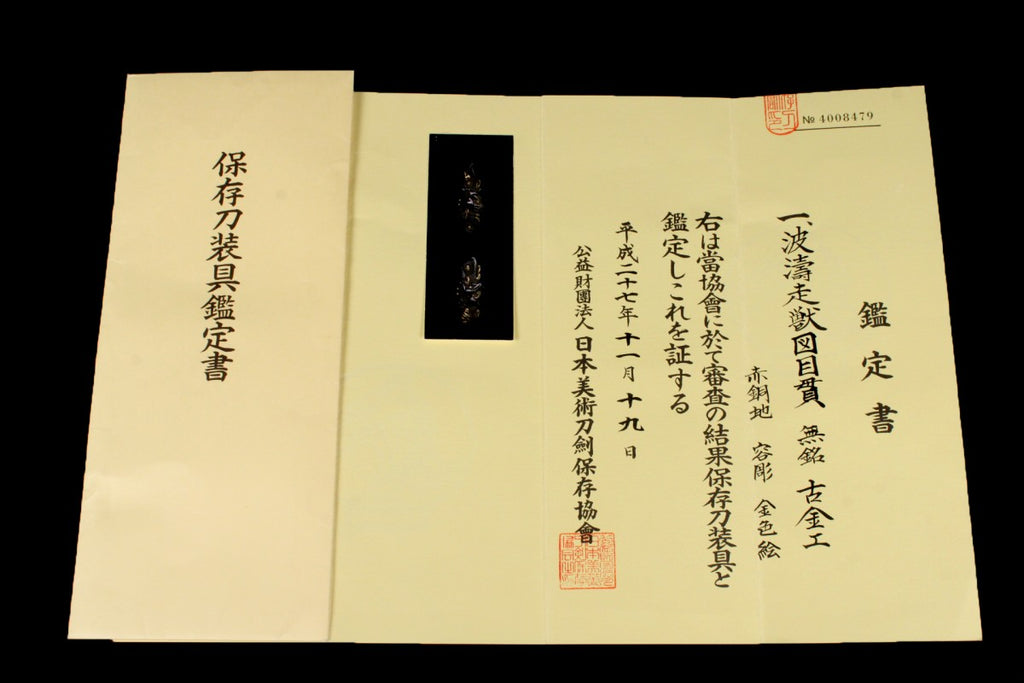 保存刀装具鑑定書
№ 4008479
鑑定書
一、波濤走獣図目貫 無銘 古金工
赤銅地 容彫 金色絵
右は當協會に於て審査の結果保存刀装具と
鑑定しこれを証する
平成二十七年十一月十九日
公益財團法人日本美術刀劍保存協會